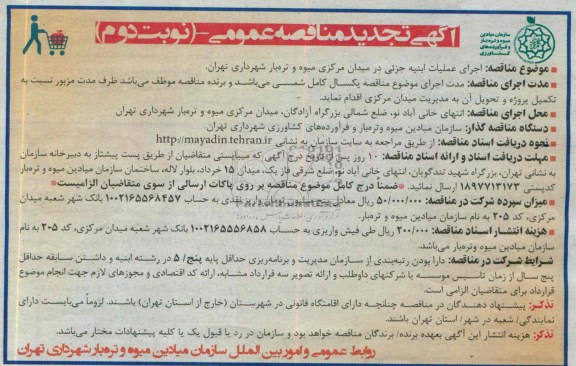 آگهی تجدید مناقصه عمومی - (نوبت دوم)
سازمان میادین
میوه و تره‌بار
و فرآورده‌های
کشاورزی
موضوع مناقصه: اجرای عملیات ابنیه جزئی در میدان مرکزی میوه و تره‌بار شهرداری تهران.
مدت اجرای مناقصه: مدت اجرای موضوع مناقصه یکسال کامل شمسی می‌باشد و برنده مناقصه موظف می‌باشد ظرف مدت مزبور نسبت به
تکمیل پروژه و تحویل آن به مدیریت میدان مرکزی اقدام نماید.
محل اجرای مناقصه: انتهای خانی آباد نو، ضلع شمالی بزرگراه آزادگان، میدان مرکزی میوه و تره‌بار شهرداری تهران
دستگاه مناقصه گذار: سازمان میادین میوه وتره‌بار و فرآورده‌های کشاورزی شهرداری تهران.
نحوه دریافت اسناد مناقصه: از طریق مراجعه به سایت سازمان به نشانی http://mayadin.tehran.ir
مهلت دریافت اسناد و ارائه اسناد مناقصه: ۱۰ روز پس از تاریخ درج آگهی که می‌بایستی متقاضیان از طریق پست پیشتاز به دبیرخانه سازمان
به نشانی تهران، بزرگراه شهید تندگویان، انتهای خانی آباد نو، ضلع شرقی فاز یک، میدان ۱۵ خرداد، بلوار لاله، ساختمان سازمان میادین میوه و تره‌بار
کدپستی ۱۸۹۷۷۱۳۱۷۳ ارسال نمائید. ضمناً درج کامل موضوع مناقصه بر روی پاکات ارسالی از سوی متقاضیان الزامیست
میزان سپرده شرکت در مناقصه: ۵۰/۰۰۰/۰۰۰ ریال معادل پنج میلیون تومان واریز نقدی به حساب ۱۰۰۲۱۶۵۵۶۸۴۵۷ بانک شهر شعبه میدان
مرکزی، کد ۲۰۵ به نام سازمان میادین میوه و تره‌بار.
هزینه انتشار اسناد مناقصه: ۲۰۰/۰۰۰ ریال طی فیش واریزی به حساب ۱۰۰۲۱۶۵۵۵۶۸۵۸ بانک شهر شعبه میدان مرکزی، کد ۲۰۵ به نام
سازمان میادین میوه وتره‌بار می‌باشد.
شرایط شرکت در مناقصه: دارا بودن رتبه‌بندی از سازمان مدیریت و برنامه‌ریزی حداقل پایه پنج/ ۵ در رشته ابنیه و داشتن سابقه حداقل
پنج سال از زمان تاسیس موسسه یا شرکتهای داوطلب و ارائه تصویر سه قرارداد مشابه، ارائه کد اقتصادی و مجوزهای لازم جهت انجام موضوع
قرارداد برای متقاضیان الزامی است.
تذکر: پیشنهاد دهندگان در مناقصه چنانچه دارای اقامتگاه قانونی در شهرستان (خارج از استان تهران) باشند. لزوماً می‌بایست دارای
نمایندگی/ شعبه در شهر/ استان تهران باشند.
تذکر: هزینه انتشار این آگهی بعهده برنده/ برندگان مناقصه خواهد بود و سازمان در رد یا قبول یک یا کلیه پیشنهادات مختار می‌باشد.
روابط عمومی و امور بین الملل سازمان میادین میوه و تره‌بار شهرداری تهران